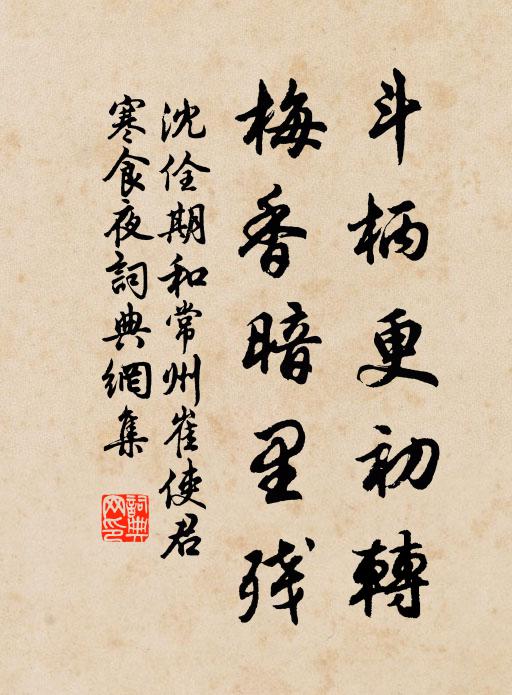 斗柄更初轉
梅香暗里残
沈佺期和常州崔使君
寒食夜詞典網集
詞典
网印